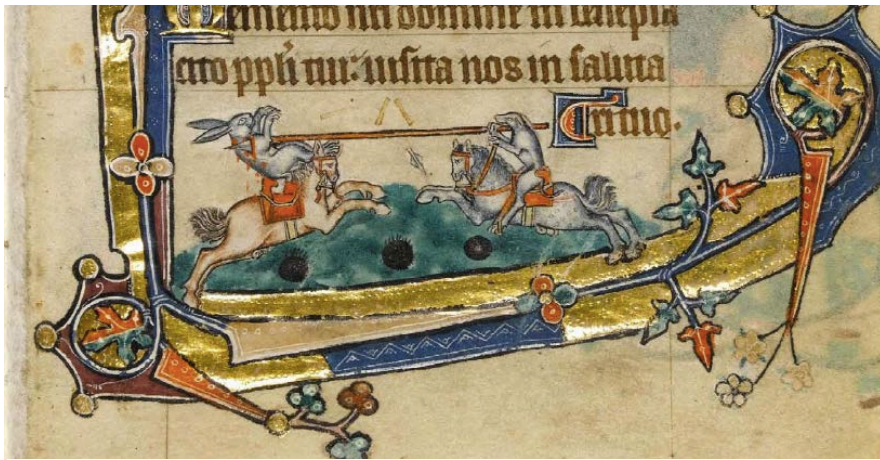 Memento nri domine in benepla
cito ppli tui: uisita nos in saluta
ri tuo.